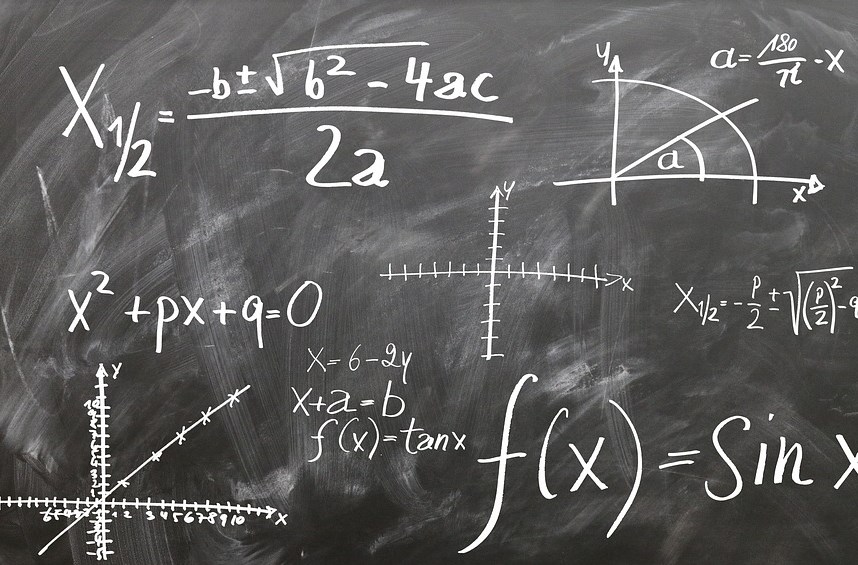 X₁/₂ = (-b ± √(b² - 4ac)) / 2a
y
a = 180/π · X
a
x
y
x
x² + px + q = 0
X₁/₂ = -p/2 ± √((p/2)² - q
X = 6 - 2y
x + a = b
f(x) = tanx
f(x) = Sin x
y
10
1 2 3 4 5 6 7 8 9 10
x